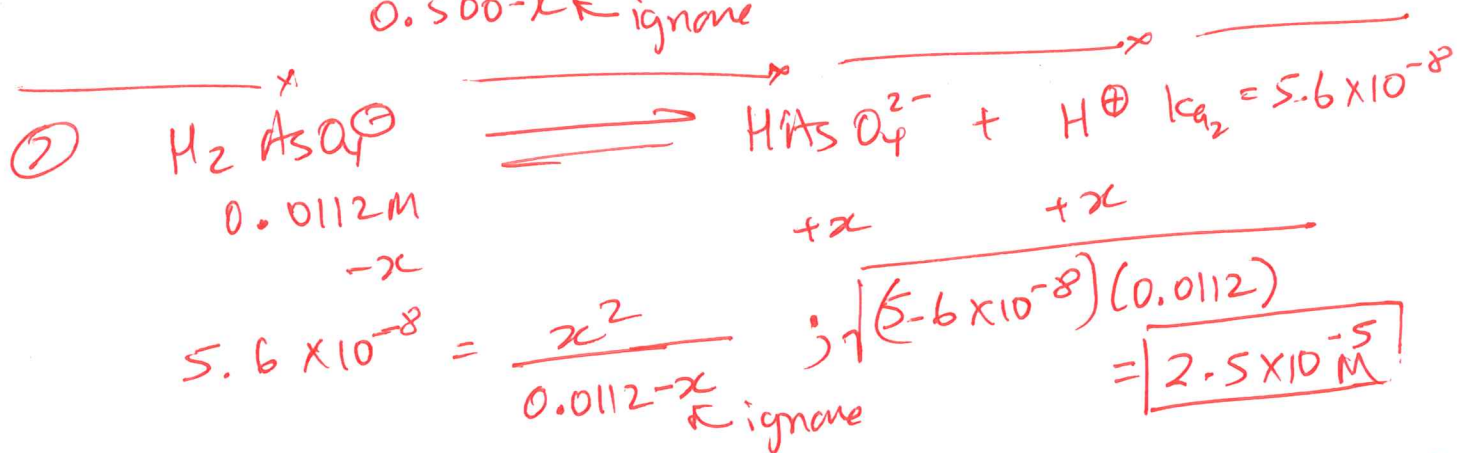 0.500-x ↖ ignore
② H₂AsO₄⊖ ⇌ HAsO₄²⁻ + H⊕ ka₂ = 5.6 x 10⁻⁸
0.0112M
-x +x +x
5.6 x 10⁻⁸ = x² / 0.0112-x ; √(5.6 x 10⁻⁸)(0.0112)
↖ ignore = 2.5 x 10⁻⁵ M